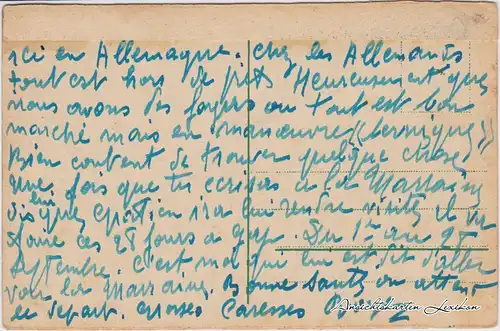 ici en Allemagne. chez les Allemands
tout est hors de prix Heureusement que
nous avons des foyers ou tout est bon
marché mais en manœuvres (bernique)
Bien content de trouver quelque chose
Une fois que tu écriras a la Marraine
dis lui que ira lui rendre visite il va
faire ces 28 jours a du 1er au 27
septembre. c'est moi qui lui est dit d'aller
voir la Marraine. Bonne Santé on attend
le départ. Grosses Caresses
Ansichtskarten Lexikon